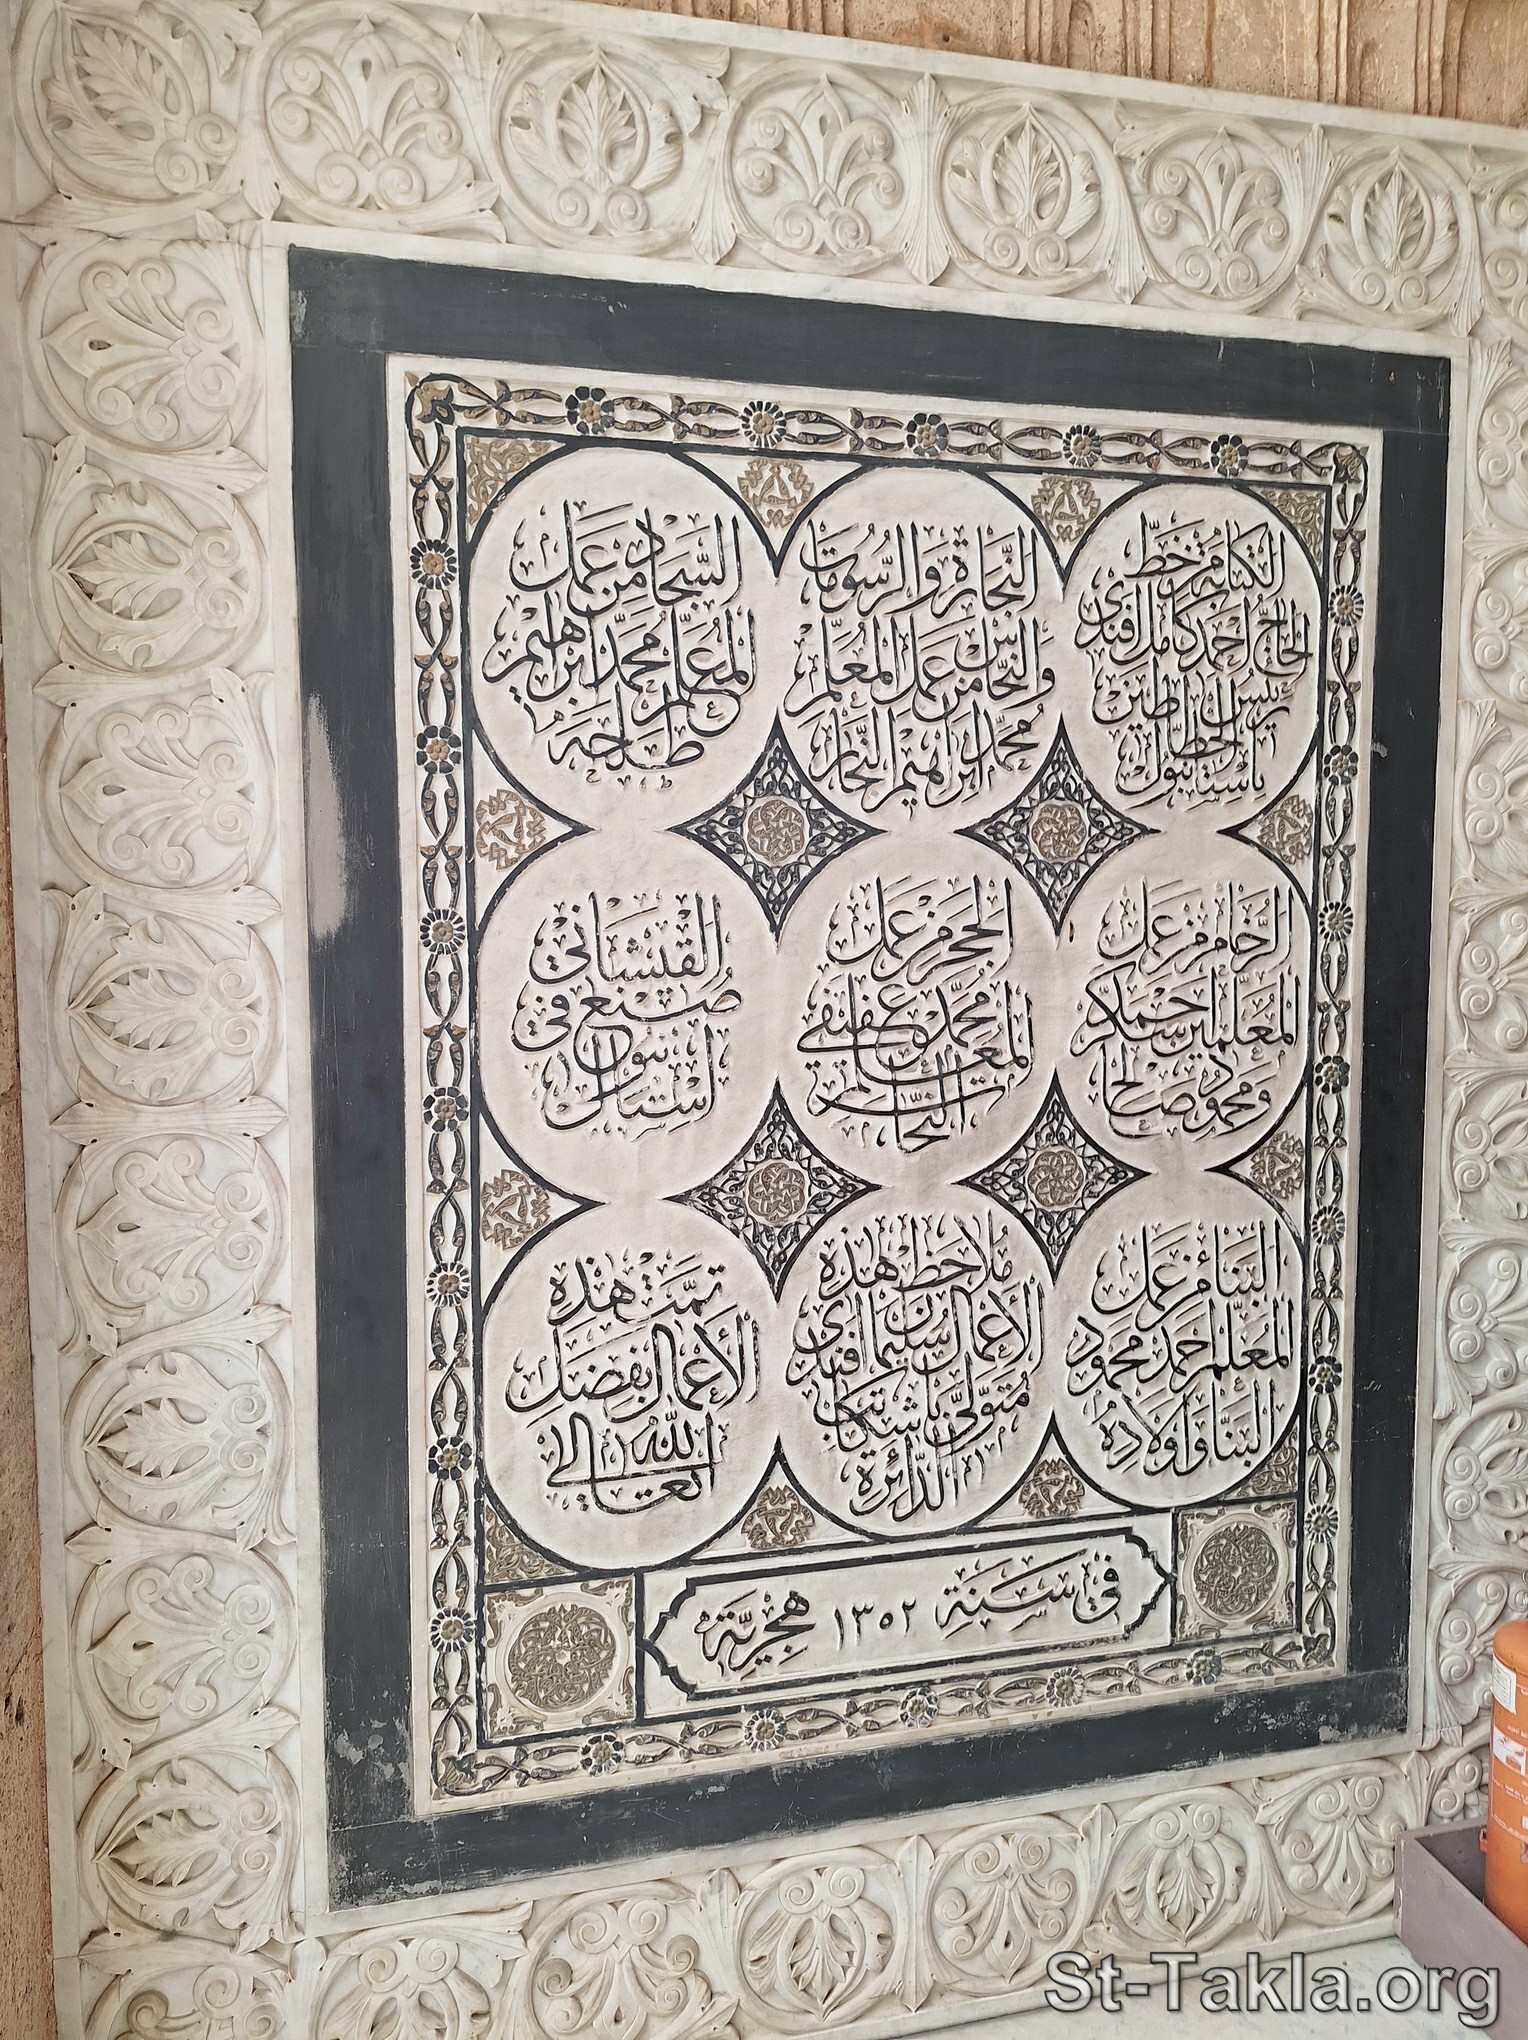 الكتابة من خط
الحاج أحمد كامل أفندي
رئيس الخطاطين
بإستانبول
النجارة والرسومات
والنحاس من عمل المعلم
محمد إبراهيم النجار
السجاد من عمل
المعلم محمد إبراهيم
طلحه
الرخام من عمل
المعلمين حسكر
ومحمود صالح
الحجر من عمل
محمد عفيفي
المعلم النحات
القيشاني
صنع في
استانبول
البناء من عمل
المعلم أحمد محمود
البنا وأولاده
ملاحظ هذه
الأعمال سليمان أفندي
متولي باشكاتب
الدائرة
تمت هذه
الأعمال بفضل
الله تعالى
في سنة ١٣٥٢ هجرية
St-Takla.org